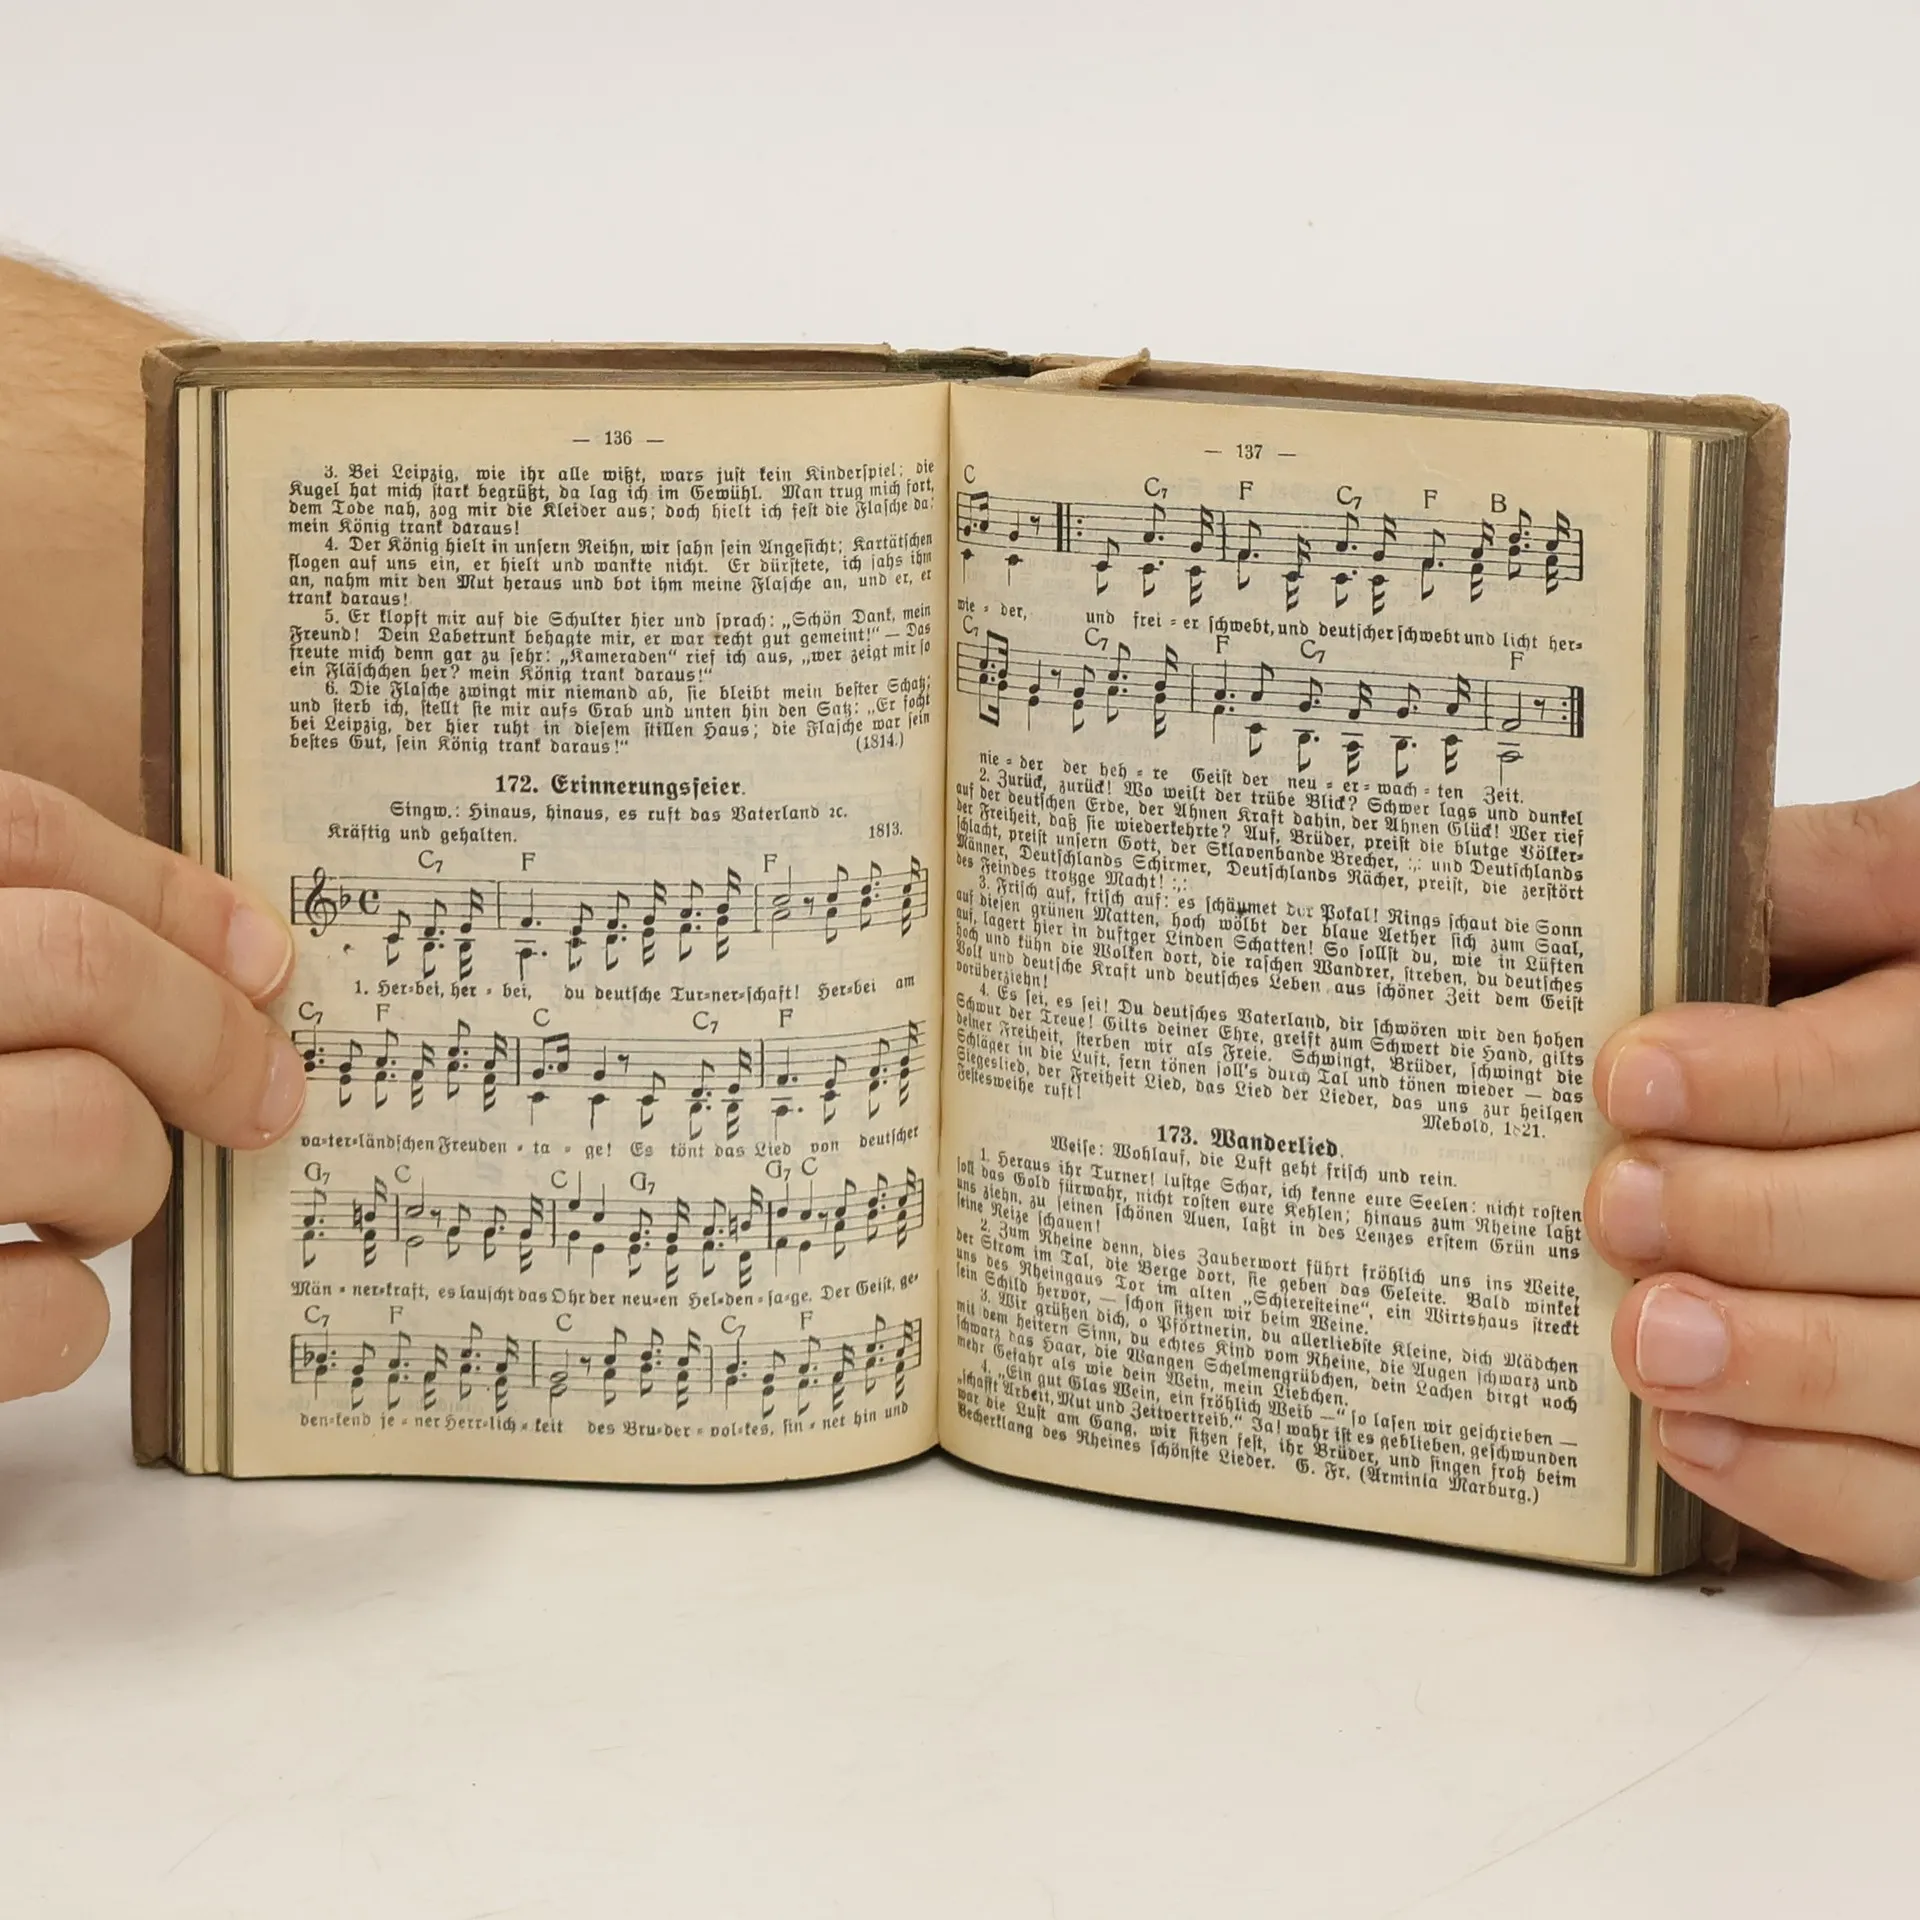 — 136 —
3. Bei Leipzig, wie ihr alle wißt, wars just kein Kinderspiel; die
Kugel hat mich stark begrüßt, da lag ich im Gewühl. Man trug mich fort,
dem Tode nah, zog mir die Kleider aus; doch hielt ich fest die Flasche da:
mein König trank daraus!
4. Der König hielt in unsern Reihn, wir sahn sein Angesicht; Kartätschen
flogen auf uns ein, er hielt und wankte nicht. Er dürstete, ich sahs ihm
an, nahm mir den Mut heraus und bot ihm meine Flasche an, und er, er
trank daraus!
5. Er klopft mir auf die Schulter hier und sprach: „Schön Dank, mein
Freund! Dein Labetrunk behagte mir, er war recht gut gemeint!“ — Das
freute mich denn gar zu sehr: „Kameraden“ rief ich aus, „wer zeigt mir so
ein Fläschchen her? mein König trank daraus!“
6. Die Flasche zwingt mir niemand ab, sie bleibt mein bester Schatz;
und sterb ich, stellt sie mir aufs Grab und unten hin den Satz: „Er focht
bei Leipzig, der hier ruht in diesem stillen Haus; die Flasche war sein
bestes Gut, sein König trank daraus!“ (1814.)
172. Erinnerungsfeier.
Singw.: Hinaus, hinaus, es ruft das Vaterland ꝛc.
Kräftig und gehalten. 1813.
C7 F F
1. Her=bei, her = bei, du deutsche Tur=ner=schaft! Her=bei am
C7 F C C7 F
va=ter=ländschen Freuden = ta = ge! Es tönt das Lied von deutscher
G7 C C G7 G7 C
Män = ner=kraft, es lauscht das Ohr der neu=en Hel=den = sa=ge. Der Geist, ge=
C7 F C C7 F
den=kend je = ner Herr=lich = keit des Bru=der = vol=kes, sin = net hin und
— 137 —
C C7 F C7 F B
wie = der, und frei = er schwebt, und deutscher schwebt und licht her=
C7 C7 F C7 F
nie = der der heh = re Geist der neu = er = wach = ten Zeit.
2. Zurück, zurück! Wo weilt der trübe Blick? Schwer lags und dunkel
auf der deutschen Erde, der Ahnen Kraft dahin, der Ahnen Glück! Wer rief
der Freiheit, daß sie wiederkehrte? Auf, Brüder, preist die blutge Völker=
schlacht, preist unsern Gott, der Sklavenbande Brecher, :,: und Deutschlands
Männer, Deutschlands Schirmer, Deutschlands Rächer, preist, die zerstört
des Feindes trotzge Macht! :,:
3. Frisch auf, frisch auf: es schäumet der Pokal! Rings schaut die Sonn
auf diesen grünen Matten, hoch wölbt der blaue Aether sich zum Saal,
auf, lagert hier in duftger Linden Schatten! So sollst du, wie in Lüften
hoch und kühn die Wolken dort, die raschen Wandrer, streben, du deutsches
Volk und deutsche Kraft und deutsches Leben aus schöner Zeit dem Geist
vorüberziehn!
4. Es sei, es sei! Du deutsches Vaterland, dir schwören wir den hohen
Schwur der Treue! Gilts deiner Ehre, greift zum Schwert die Hand, gilts
deiner Freiheit, sterben wir als Freie. Schwingt, Brüder, schwingt die
Schläger in die Luft, fern tönen soll's durch Tal und tönen wieder — das
Siegeslied, der Freiheit Lied, das Lied der Lieder, das uns zur heilgen
Festesweihe ruft!
Mebold, 1821.
173. Wanderlied.
Weise: Wohlauf, die Luft geht frisch und rein.
1. Heraus ihr Turner! lustge Schar, ich kenne eure Seelen: nicht rosten
soll das Gold fürwahr, nicht rosten eure Kehlen; hinaus zum Rheine laßt
uns ziehn, zu seinen schönen Auen, laßt in des Lenzes erstem Grün uns
seine Reize schauen!
2. Zum Rheine denn, dies Zauberwort führt fröhlich uns ins Weite,
der Strom im Tal, die Berge dort, sie geben das Geleite. Bald winket
uns des Rheingaus Tor im alten „Schiersteine“, ein Wirtshaus streckt
sein Schild hervor, — schon sitzen wir beim Weine.
3. Wir grüßen dich, o Pförtnerin, du allerliebste Kleine, dich Mädchen
mit dem heitern Sinn, du echtes Kind vom Rheine, die Augen schwarz und
schwarz das Haar, die Wangen Schelmengrübchen, dein Lachen birgt noch
mehr Gefahr als wie dein Wein, mein Liebchen.
4. „Ein gut Glas Wein, ein fröhlich Weib —“ so lasen wir geschrieben —
„schafft Arbeit, Mut und Zeitvertreib.“ Ja! wahr ist es geblieben, geschwunden
war die Lust am Gang, wir sitzen fest, ihr Brüder, und singen froh beim
Becherklang des Rheines schönste Lieder. G. Fr. (Arminia Marburg.)